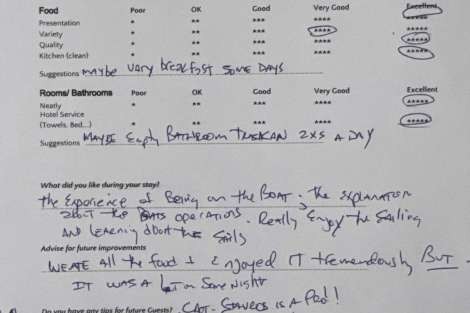 Food Poor OK Good Very Good Excellent
Presentation * ** *** ****
Variety * ** *** **** *****
Quality * ** *** **** *****
Kitchen (clean) * ** *** **** *****
Suggestions MAYBE vary breakfast SOME DAYS
Rooms/ Bathrooms Poor OK Good Very Good Excellent
Neatly * ** *** **** *****
Hotel Service
(Towels, Bed...) * ** *** **** *****
Suggestions MAYBE Empty BATHROOM TRASHCAN 2XS A DAY
What did you like during your stay?
the Experience of Being on the BOAT. the EXPLANATION
about the BOATS operations. Really Enjoy the Sailing
AND LEARNING about the Sails
Advise for future improvements
WE ATE All the food + Enjoyed IT tremendously BUT -
IT WAS A LOT on Some Night
Do you have any tips for future Guests? CAT. STAVROS IS A Pro!